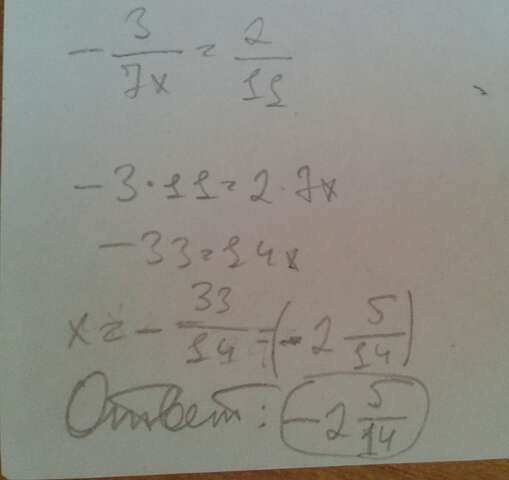 -3/7x = 2/11
-3·11=2·7x
-33=14x
x=-33/14=(-2 5/14)
Ответ: -2 5/14